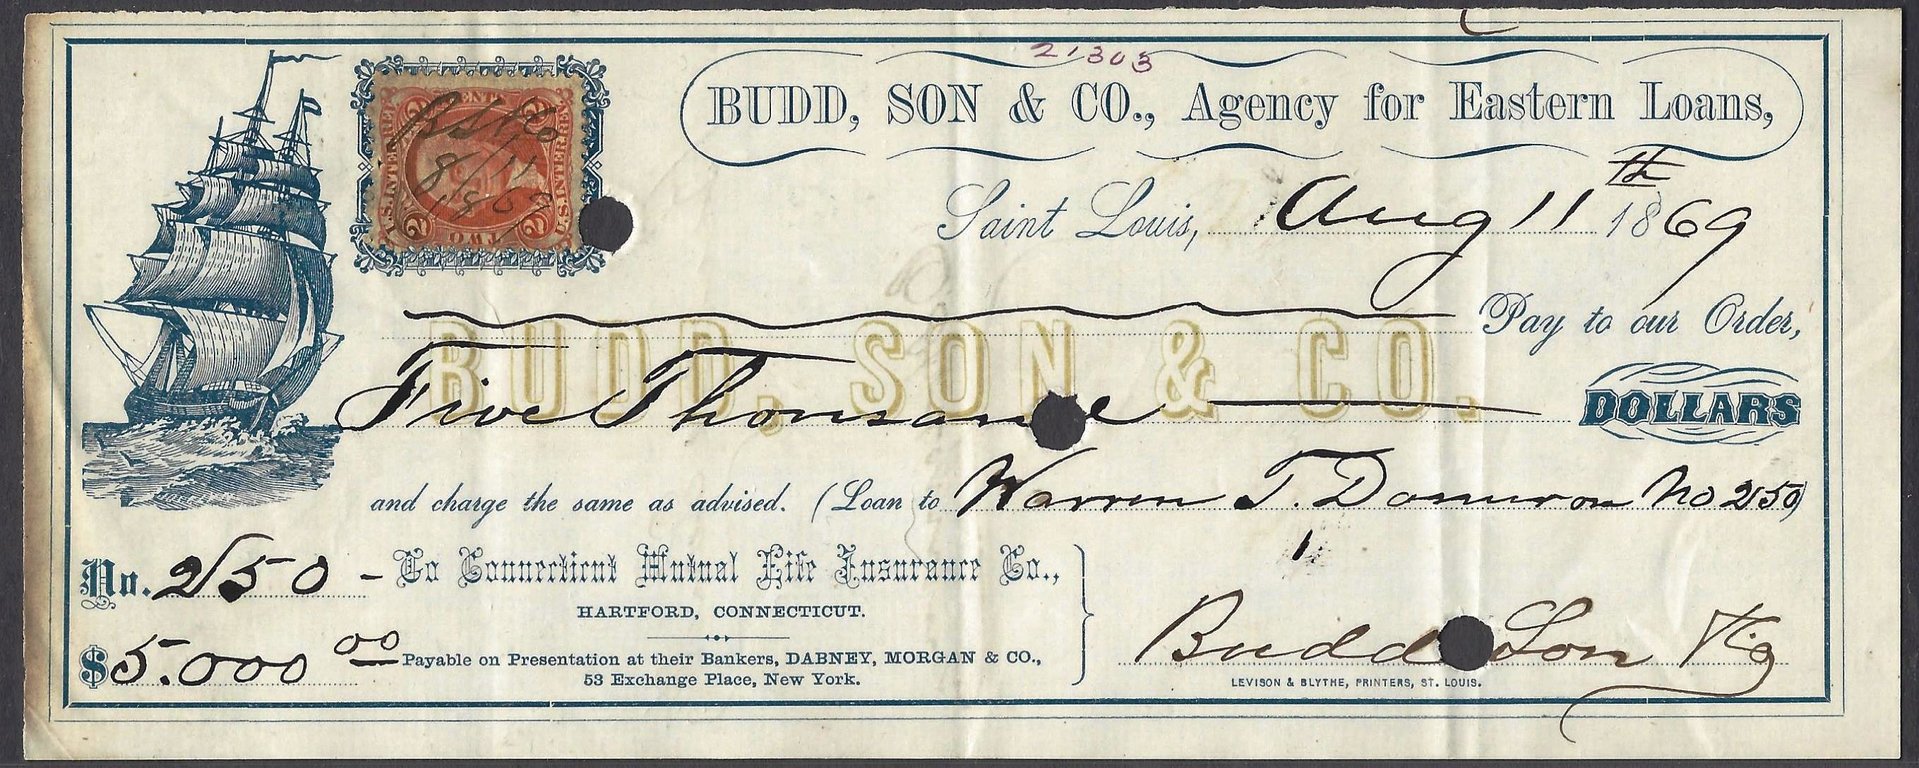 21303
BUDD, SON & CO., Agency for Eastern Loans,
2 CENTS 2
U.S. INTER. REV.
U.S. INTER. REV.
B S & Co
8/11
1869
2 TWO 2
Saint Louis, Aug 11th 1869
Pay to our Order,
BUDD, SON & CO.
Five Thousand DOLLARS
and charge the same as advised. (Loan to Warren T. No 250)
No. 250 - To Connecticut Mutual Life Insurance Co.,
HARTFORD, CONNECTICUT.
$5.000 00 Payable on Presentation at their Bankers, DABNEY, MORGAN & CO.,
53 Exchange Place, New York.
Budd Son & Co
LEVISON & BLYTHE, PRINTERS, ST. LOUIS.